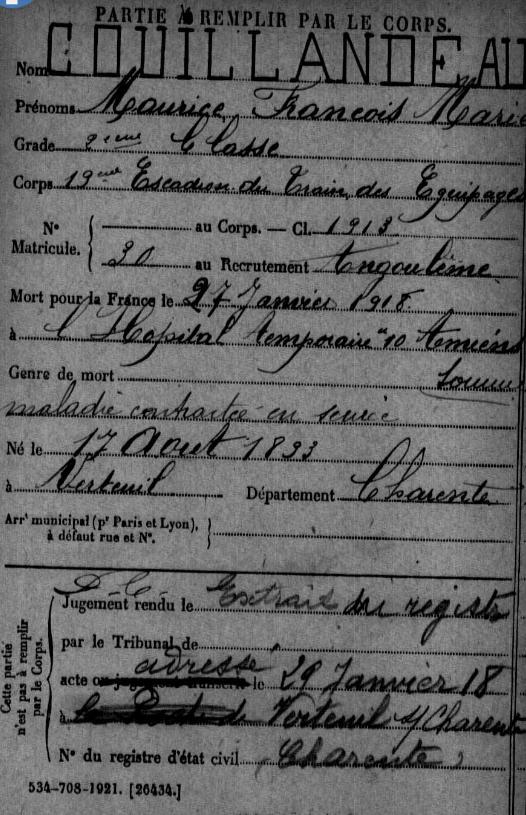 PARTIE À REMPLIR PAR LE CORPS.
Nom COUILLANDEAU
Prénoms Maurice François Marie
Grade 2ème Classe
Corps 19ème Escadron du Train des Equipages
N° Matricule. { au Corps. — Cl. 1913
30 au Recrutement Angoulême
Mort pour la France le 27 Janvier 1918
à l'Hopital temporaire n° 10 Amiens
Genre de mort Somme
maladie contractée en service
Né le 17 Aout 1893
à Verteuil Département Charente
Arrt municipal (pr Paris et Lyon), à défaut rue et N°. }
Cette partie n'est pas à remplir par le Corps.
Jugement rendu le Extrait du registre
par le Tribunal de
adressé
acte ou jugement transcrit le 29 Janvier 18
à Verteuil s/Charente
N° du registre d'état civil Charente
534-708-1921. [26434.]